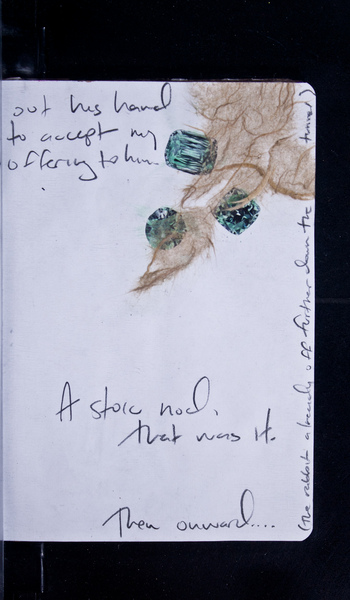 out his hand
to accept my
offering to him.
A stoic nod,
that was it.
Then onward....
(The rabbit already off further down the tunnel)